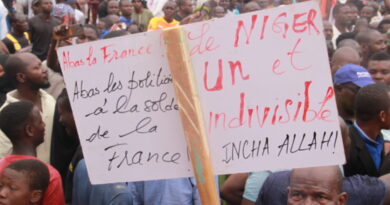 Abas la France
Abas les politi
à la solde
de la
France!
le NIGER
Un et
indivisible
INCHA ALLAH!